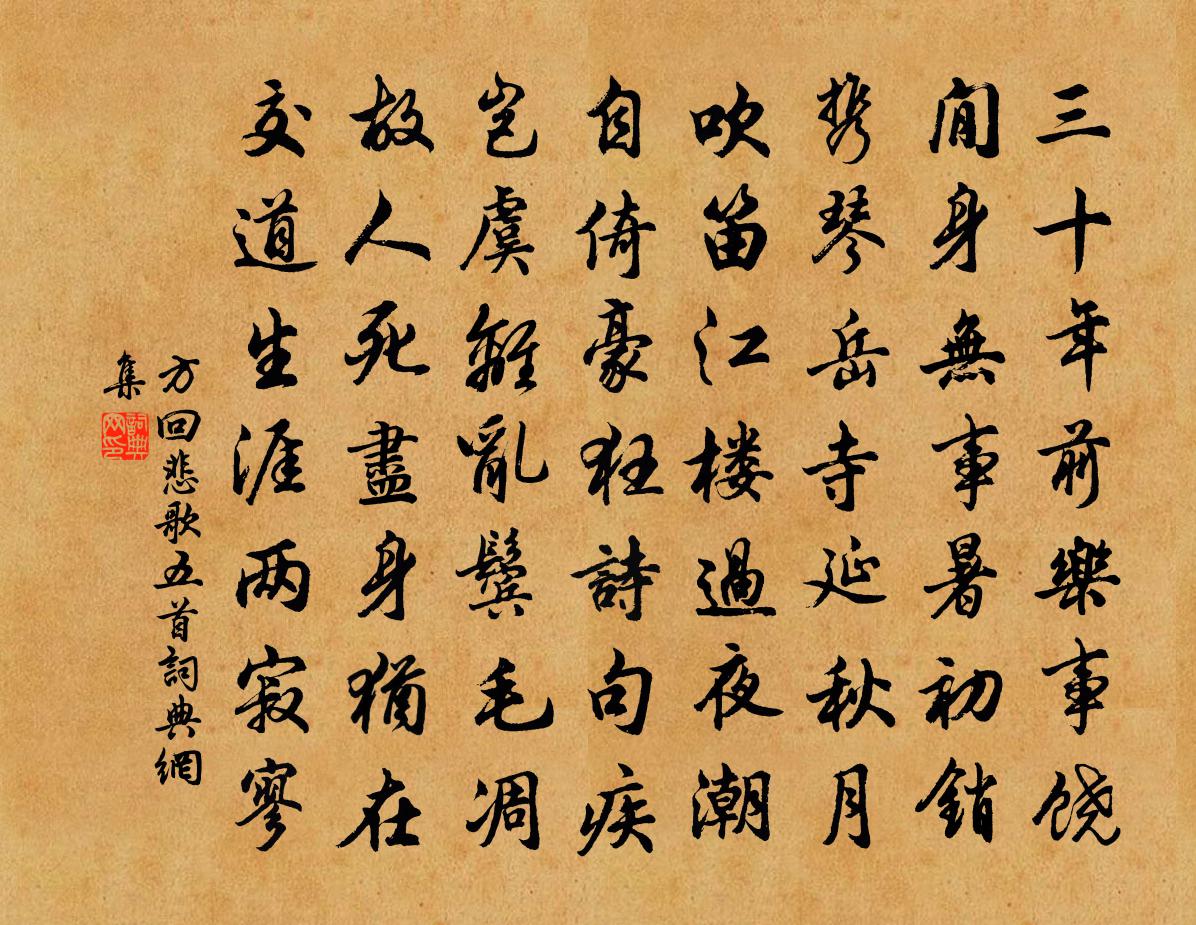 三十年前樂事饶
閒身無事暑初銷
携琴岳寺延秋月
吹笛江楼過夜潮
自倚豪狂詩句疾
岂虞離亂鬓毛凋
故人死盡身猶在
交道生涯两寂寥
方回悲歌五首詞典網
集
詞典网印